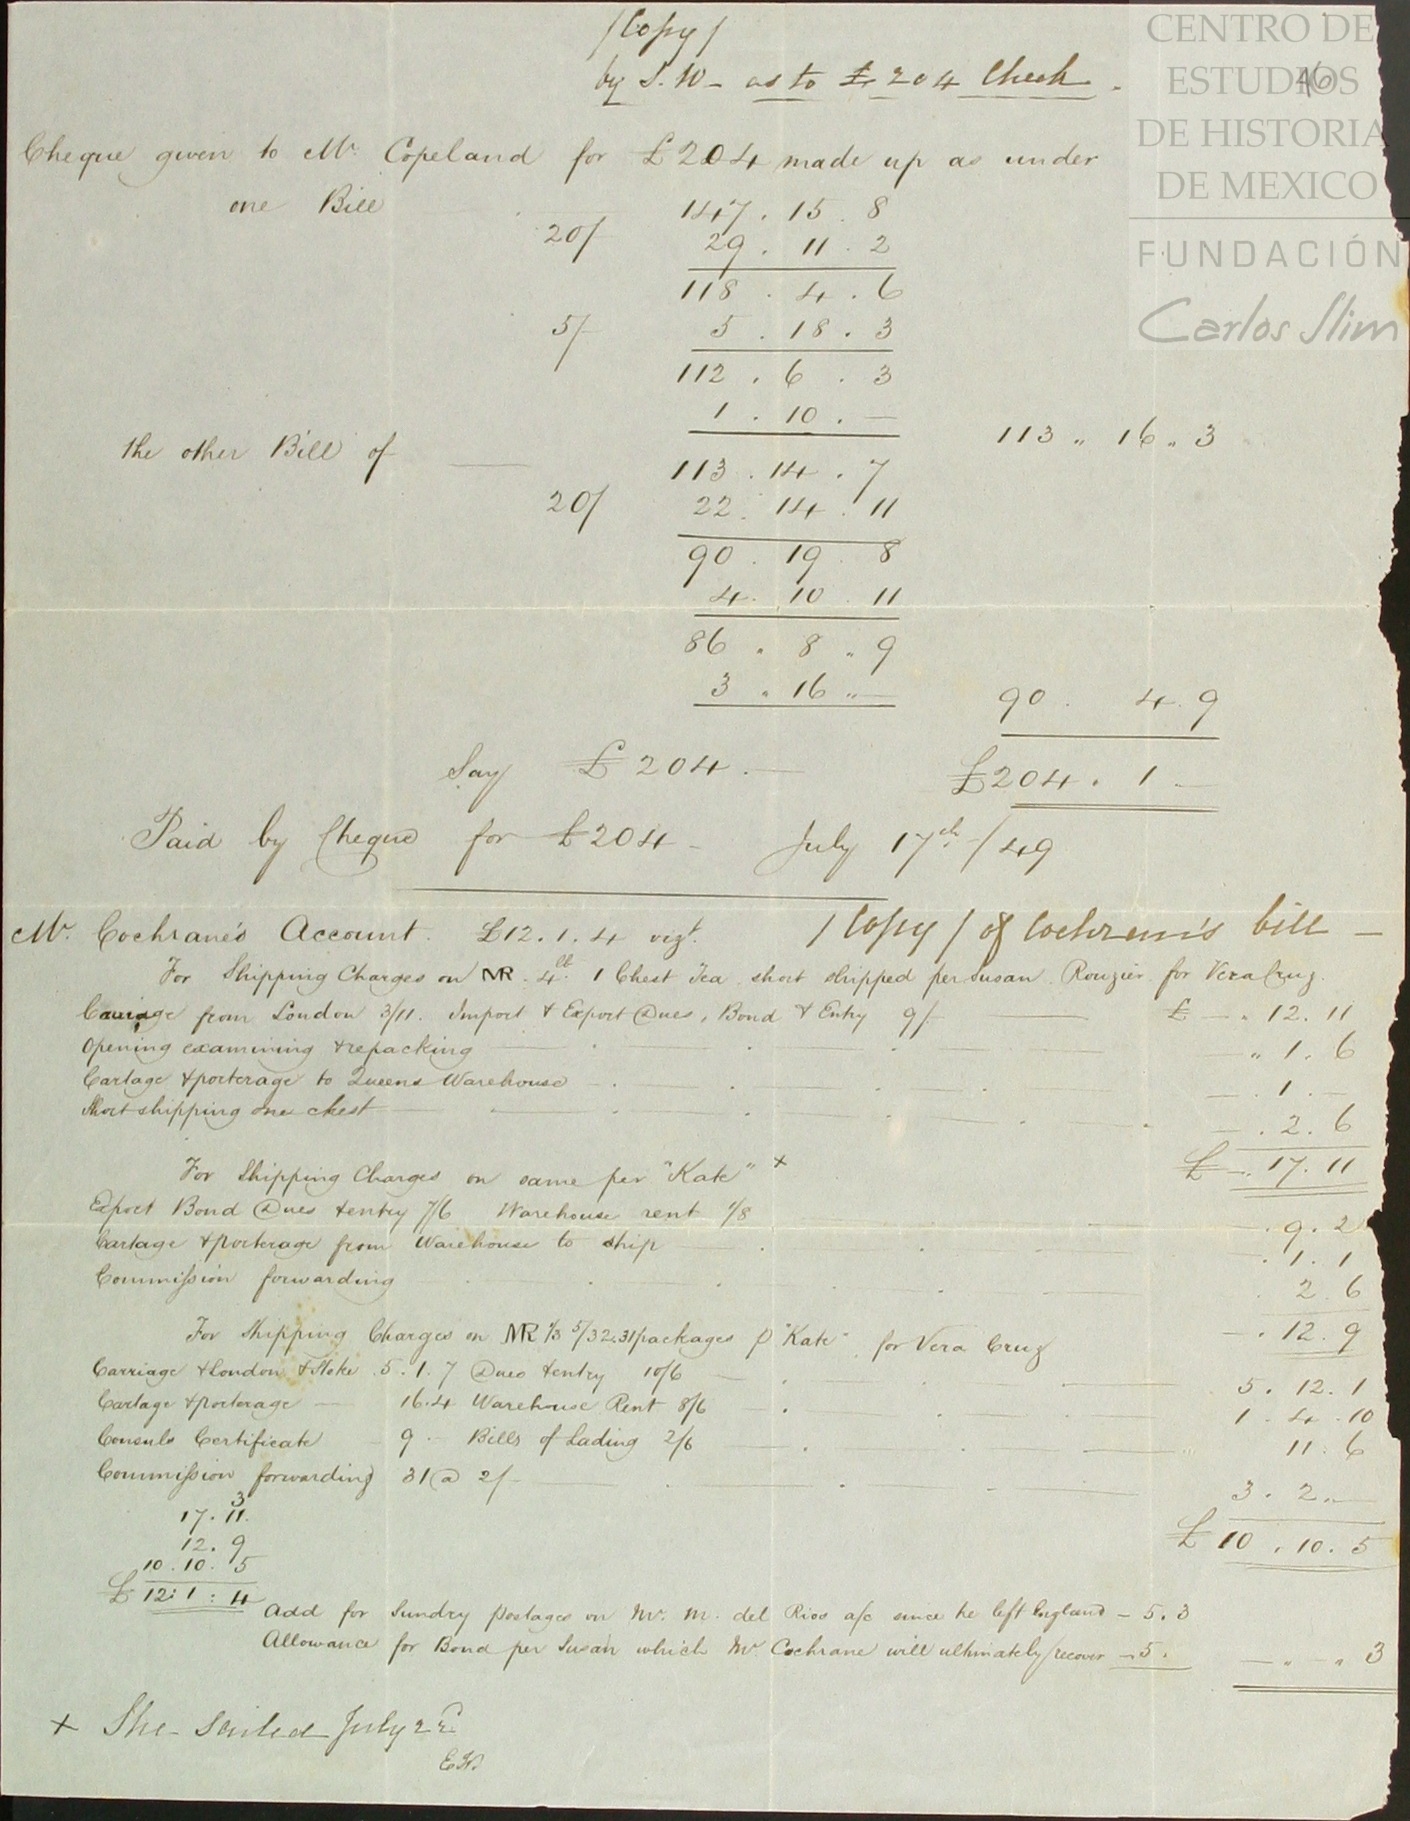 CENTRO DE
ESTUDIOS
DE HISTORIA
DE MEXICO
FUNDACIÓN
Carlos Slim
46
/Copy/
by S. W - as to £204 Check.
Cheque given to Mr. Copeland for £204 made up as under
one Bill 147 . 15 . 8
20/ 29 . 11 . 2
118 . 4 . 6
5/ 5 . 18 . 3
112 . 6 . 3
1 . 10 . —
113 " 16 " 3
the other Bill of — 113 . 14 . 7
20/ 22 . 14 . 11
90 . 19 . 8
4 . 10 . 11
86 " 8 " 9
3 " 16 " —
90 . 4 . 9
Say £204 . — £204 . 1 —
Paid by Cheque for £204 - July 17th /49
Mr. Cochrane's Account. £12 . 1 . 4 vizt. /Copy/ of Cochrane's bill —
For Shipping Charges on NR . 4 lb 1 Chest Tea short shipped per Susan Rouzier for Vera Cruz
Carriage from London 3/11. Import & Export Dues, Bond & Entry 9/- £ — " 12 . 11
Opening examining & repacking " 1 . 6
Cartage & porterage to Queens Warehouse — . 1 . —
Short shipping one chest — . 2 . 6
£ — . 17 . 11
For Shipping Charges on same per "Kate" x
Export Bond Dues & entry 7/6 Warehouse rent 1/8 — . 9 . 2
Cartage & porterage from Warehouse to ship — . 1 . 1
Commission forwarding 2 . 6
— . 12 . 9
For Shipping Charges on NR 1/3 5/32. 31 packages p "Kate" for Vera Cruz
Carriage & London & Stoke 5 . 1 . 7 Dues & entry 10/6 5 . 12 . 1
Cartage & porterage — 16 . 4 Warehouse Rent 8/6 1 . 4 . 10
Consuls Certificate 9 - Bills of Lading 2/6 11 . 6
Commission forwarding 31 @ 2/- 3 . 2 " —
£ 10 . 10 . 5
3
17 . 11
12 . 9
10 . 10 . 5
£ 12 : 1 : 4
Add for Sundry postages on Mr. M. del Rios a/c since he left England — 5 . 3
Allowance for Bond per Susan which Mr. Cochrane will ultimately recover — 5 . — " — " 3
x She sailed July 22d